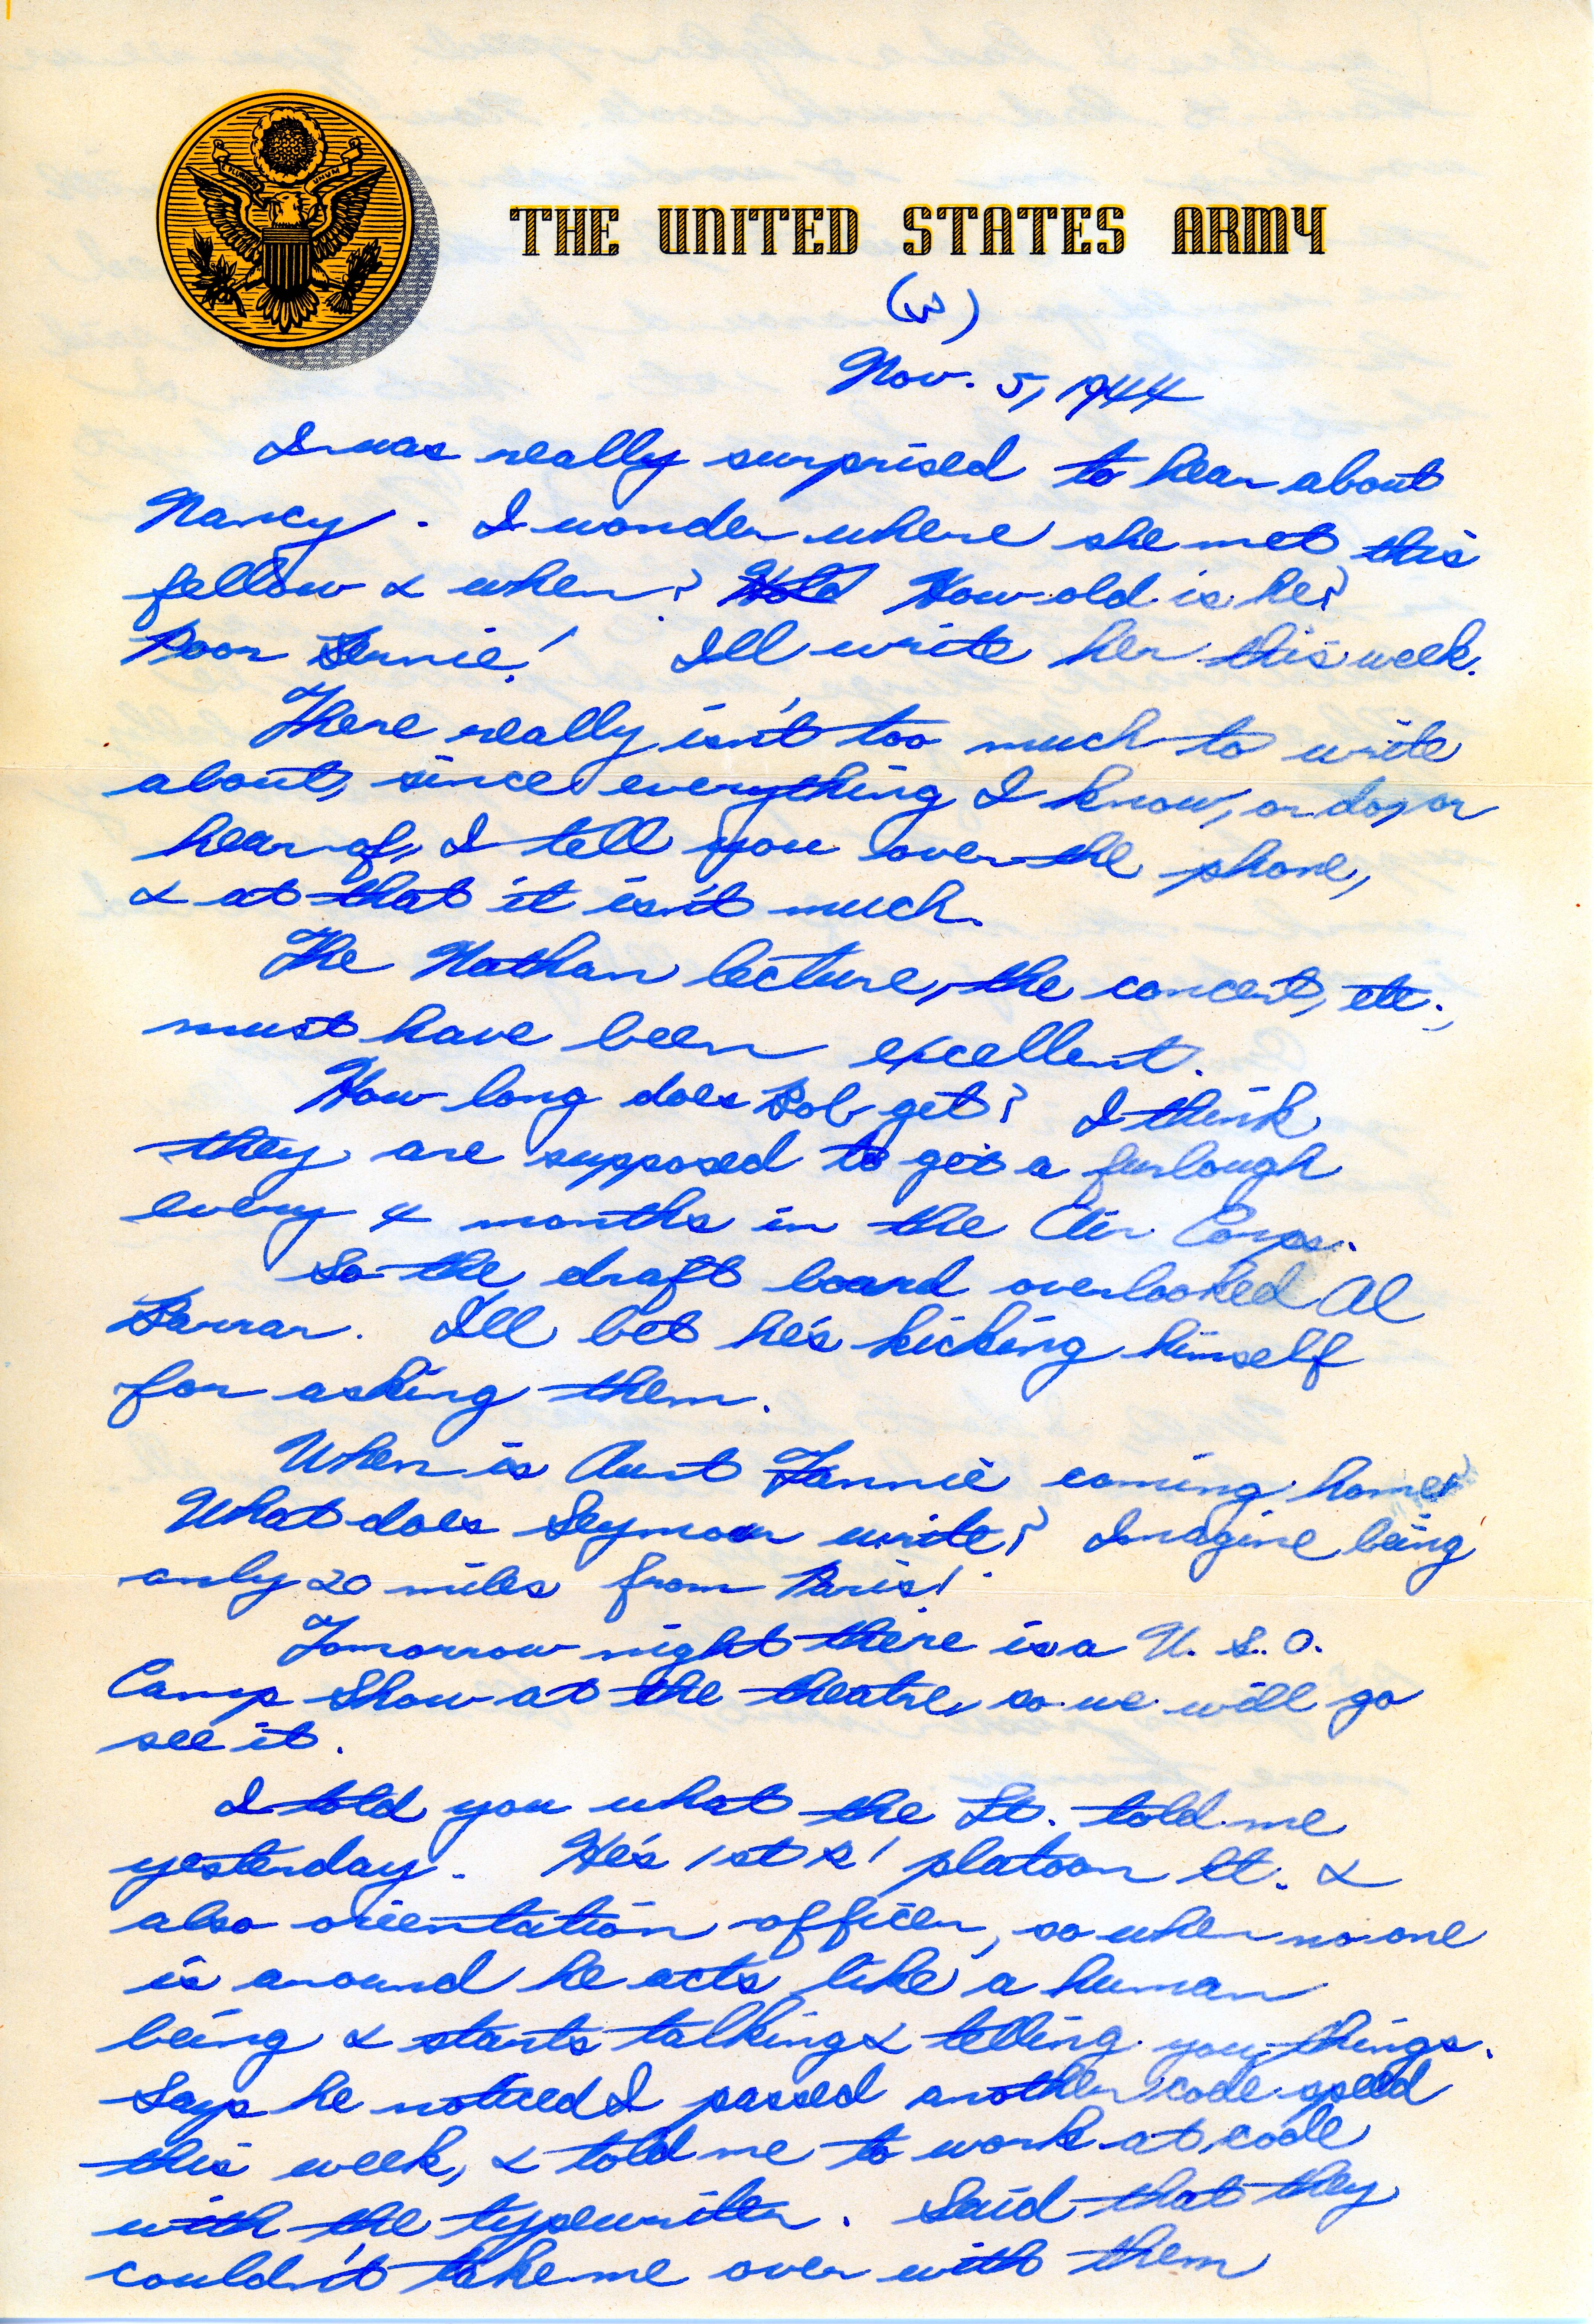 E PLURIBUS UNUM
THE UNITED STATES ARMY
(3)
Nov. 5, 1944
I was really surprised to hear about
Nancy. I wonder where she met this
fellow & when? How old is he?
Poor Bernie! I'll write her this week.
There really isn't too much to write
about, since everything I know, or do, or
hear of, I tell you over the phone,
& at that it isn't much.
The Nathan lecture, the concert, etc.,
must have been excellent.
How long does Bob get? I think
they are supposed to get a furlough
every 4 months in the Air Corps.
So the draft board overlooked Al
Barrar. I'll bet he's kicking himself
for asking them.
When is Aunt Fannie coming home?
What does Seymour write? Imagine being
only 20 miles from Paris!
Tomorrow night there is a U.S.O.
Camp Show at the theatre, so we will go
see it.
I told you what the Lt. told me
yesterday. He's 1st platoon Lt. &
also orientation officer, so when no one
is around he acts like a human
being & starts talking & telling you things.
Says he noticed I passed another code speed
this week, & told me to work at code
with the typewriter. Said that they
couldn't take me over with them